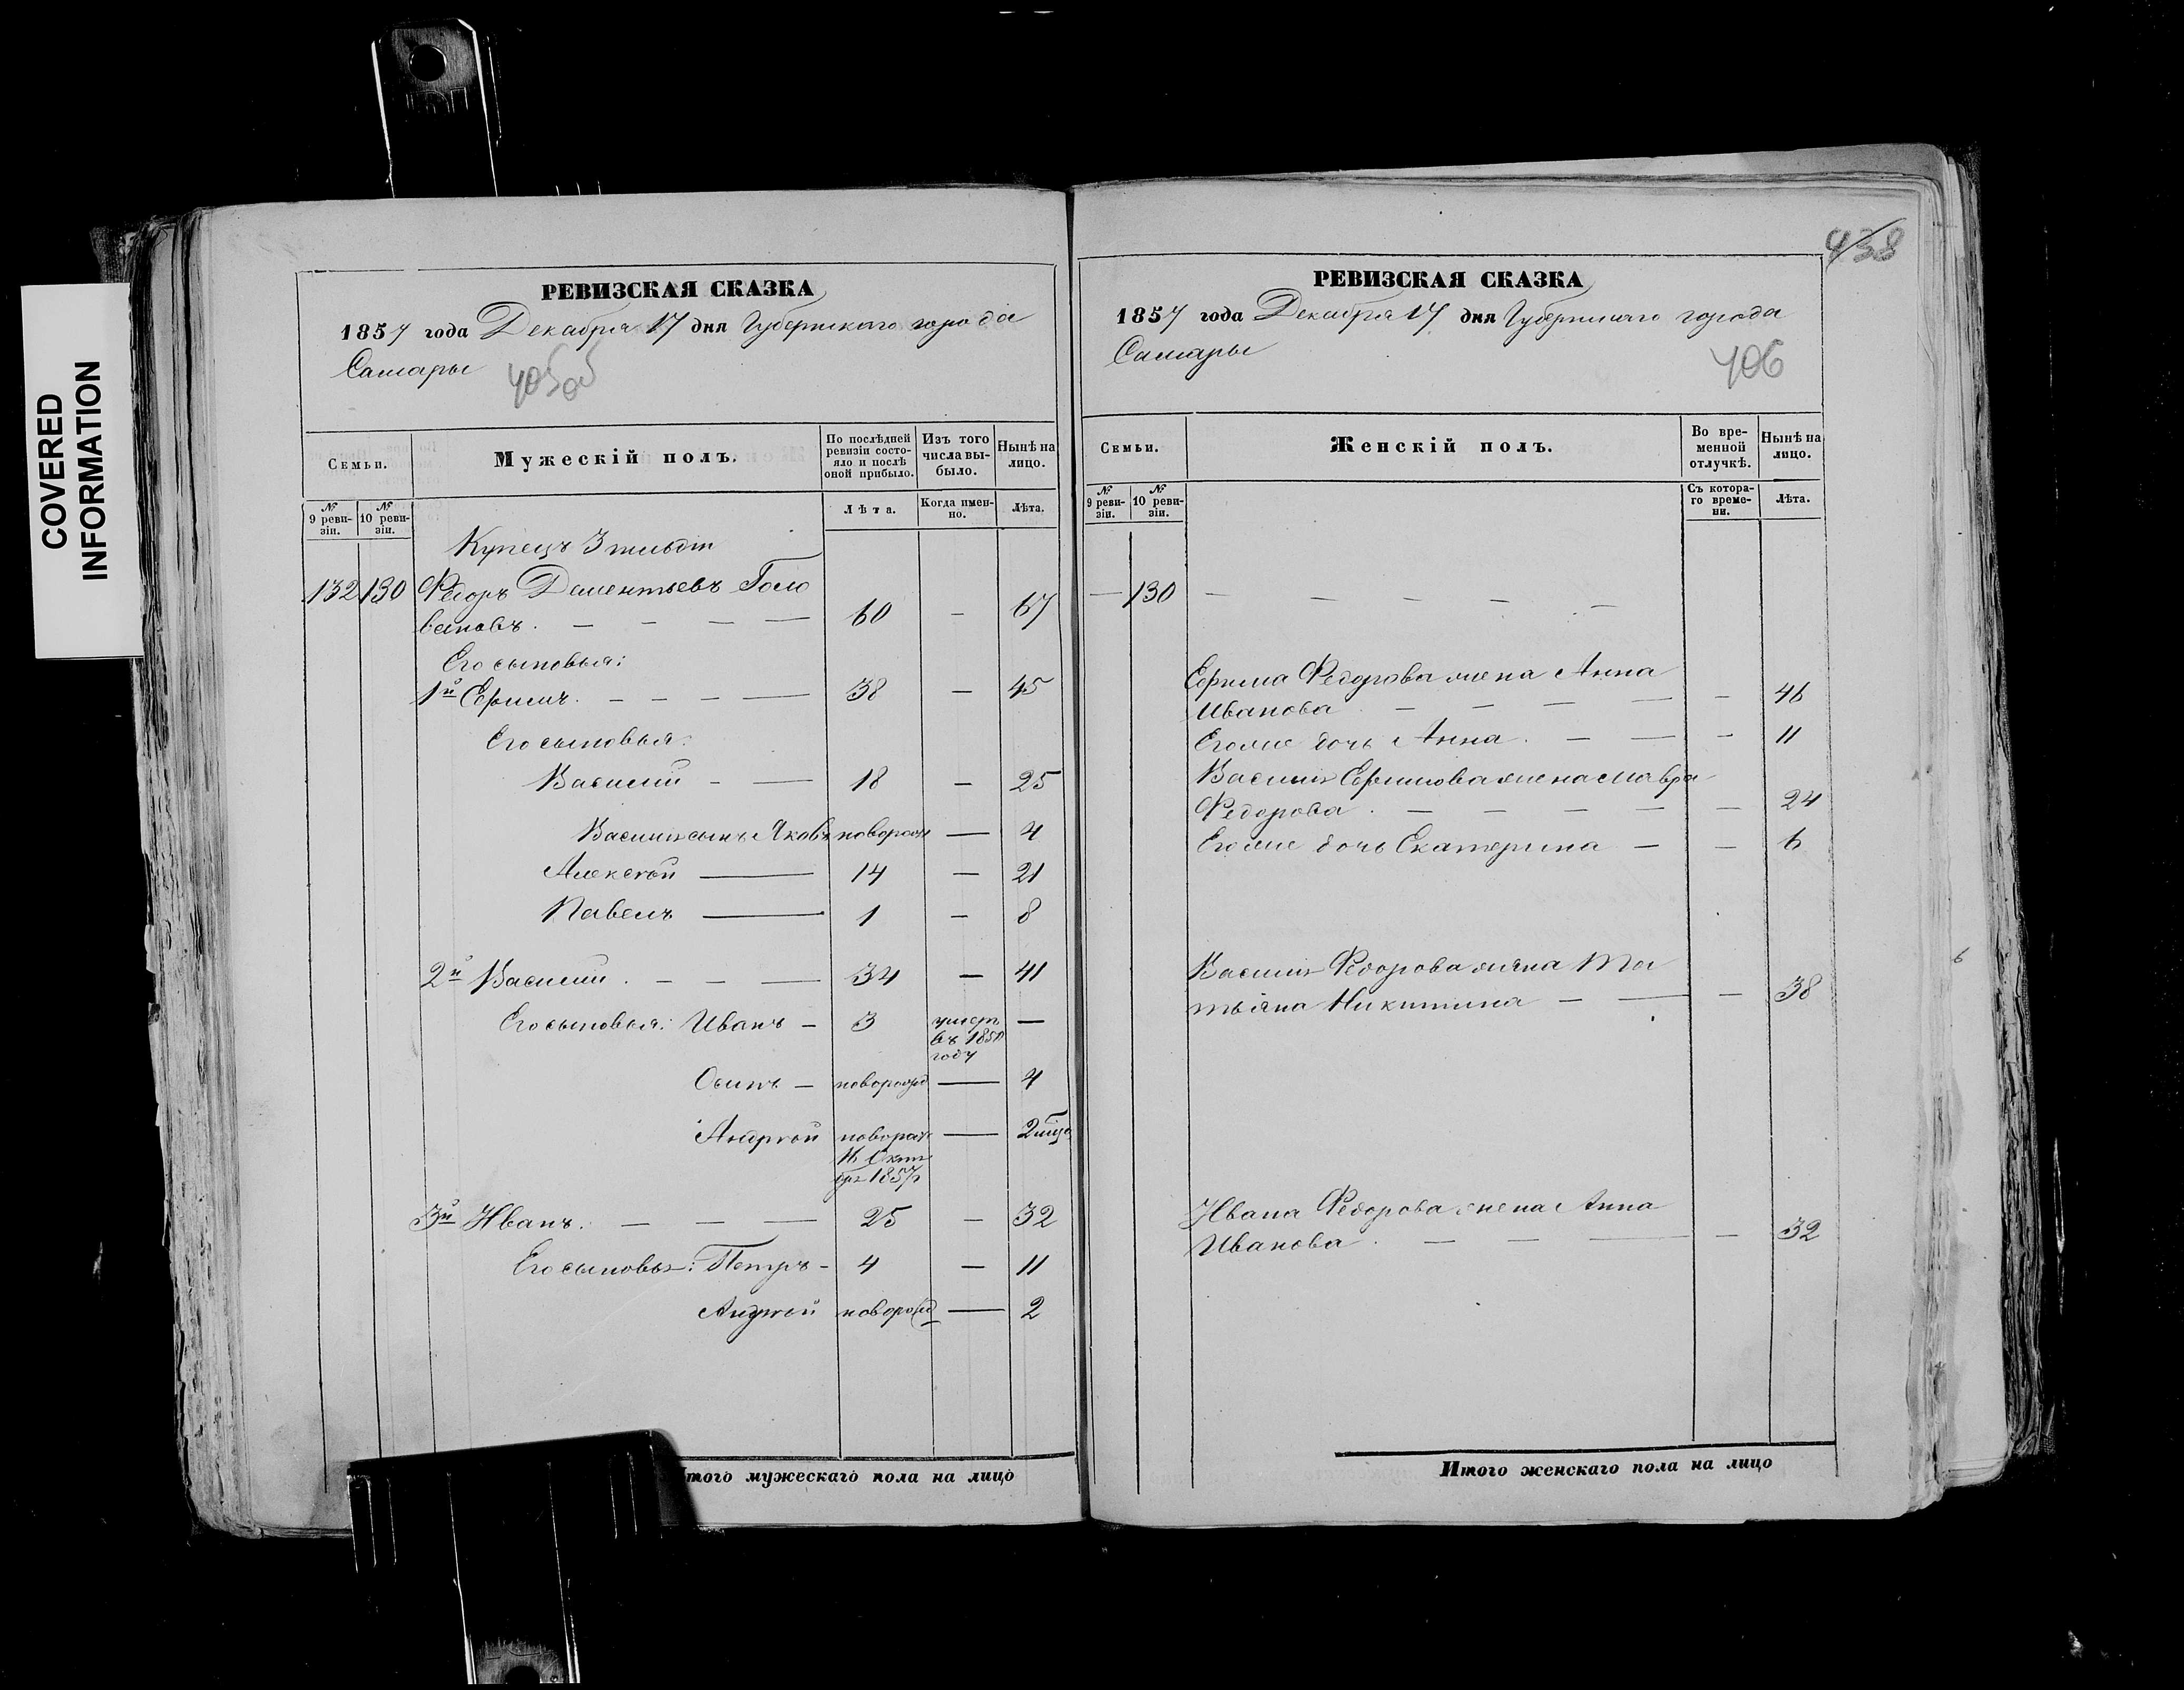 COVERED
INFORMATION
РЕВИЗСКАЯ СКАЗКА
1857 года Декабря 17 дня Губернскаго города
Самары
405об
Семьи.
Мужескій полъ.
По послѣдней ревизіи состояло и послѣ оной прибыло.
Изъ того числа выбыло.
Нынѣ на лицо.
№ 9 ревизіи.
№ 10 ревизіи.
Лѣта.
Когда именно.
Лѣта.
Купецъ 3 гильдіи
132 130 Федоръ Дементьевъ Голо
вановъ. — — — — 60 — 67
Его сыновья:
1й Ефимъ. — — — — 38 — 45
Его сыновья:
Василій — — 18 — 25
Василія сынъ Яковъ новорож — 4
Алексѣй — 14 — 21
Павелъ — 1 — 8
2й Василій. — — — 34 — 41
Его сыновья: Иванъ — 3 умеръ —
въ 185
году
Осипъ — новорожд — 4
Андрей новорож — 2 мѣца
Октя
бря 1857 г.
3й Иванъ. — — — 25 — 32
Его сыновья: Петръ — 4 — 11
Андрей новорожд — 2
Итого мужескаго пола на лицо
438
РЕВИЗСКАЯ СКАЗКА
1857 года Декабря 17 дня Губернскаго города
Самары
406
Семьи.
Женскій полъ.
Во временной отлучкѣ.
Нынѣ на лицо.
№ 9 ревизіи.
№ 10 ревизіи.
Съ котораго времени.
Лѣта.
— 130 — — — — —
Ефима Федорова жена Анна
Иванова. — — — — — 46
Его же дочь Анна. — — — 11
Василія Ефимова жена Мавра
Федорова. — — — — — 24
Его же дочь Екатерина — — 6
Василія Федорова жена Та
тьяна Никитина — — — 38
Ивана Федорова жена Анна
Иванова. — — — — 32
Итого женскаго пола на лицо